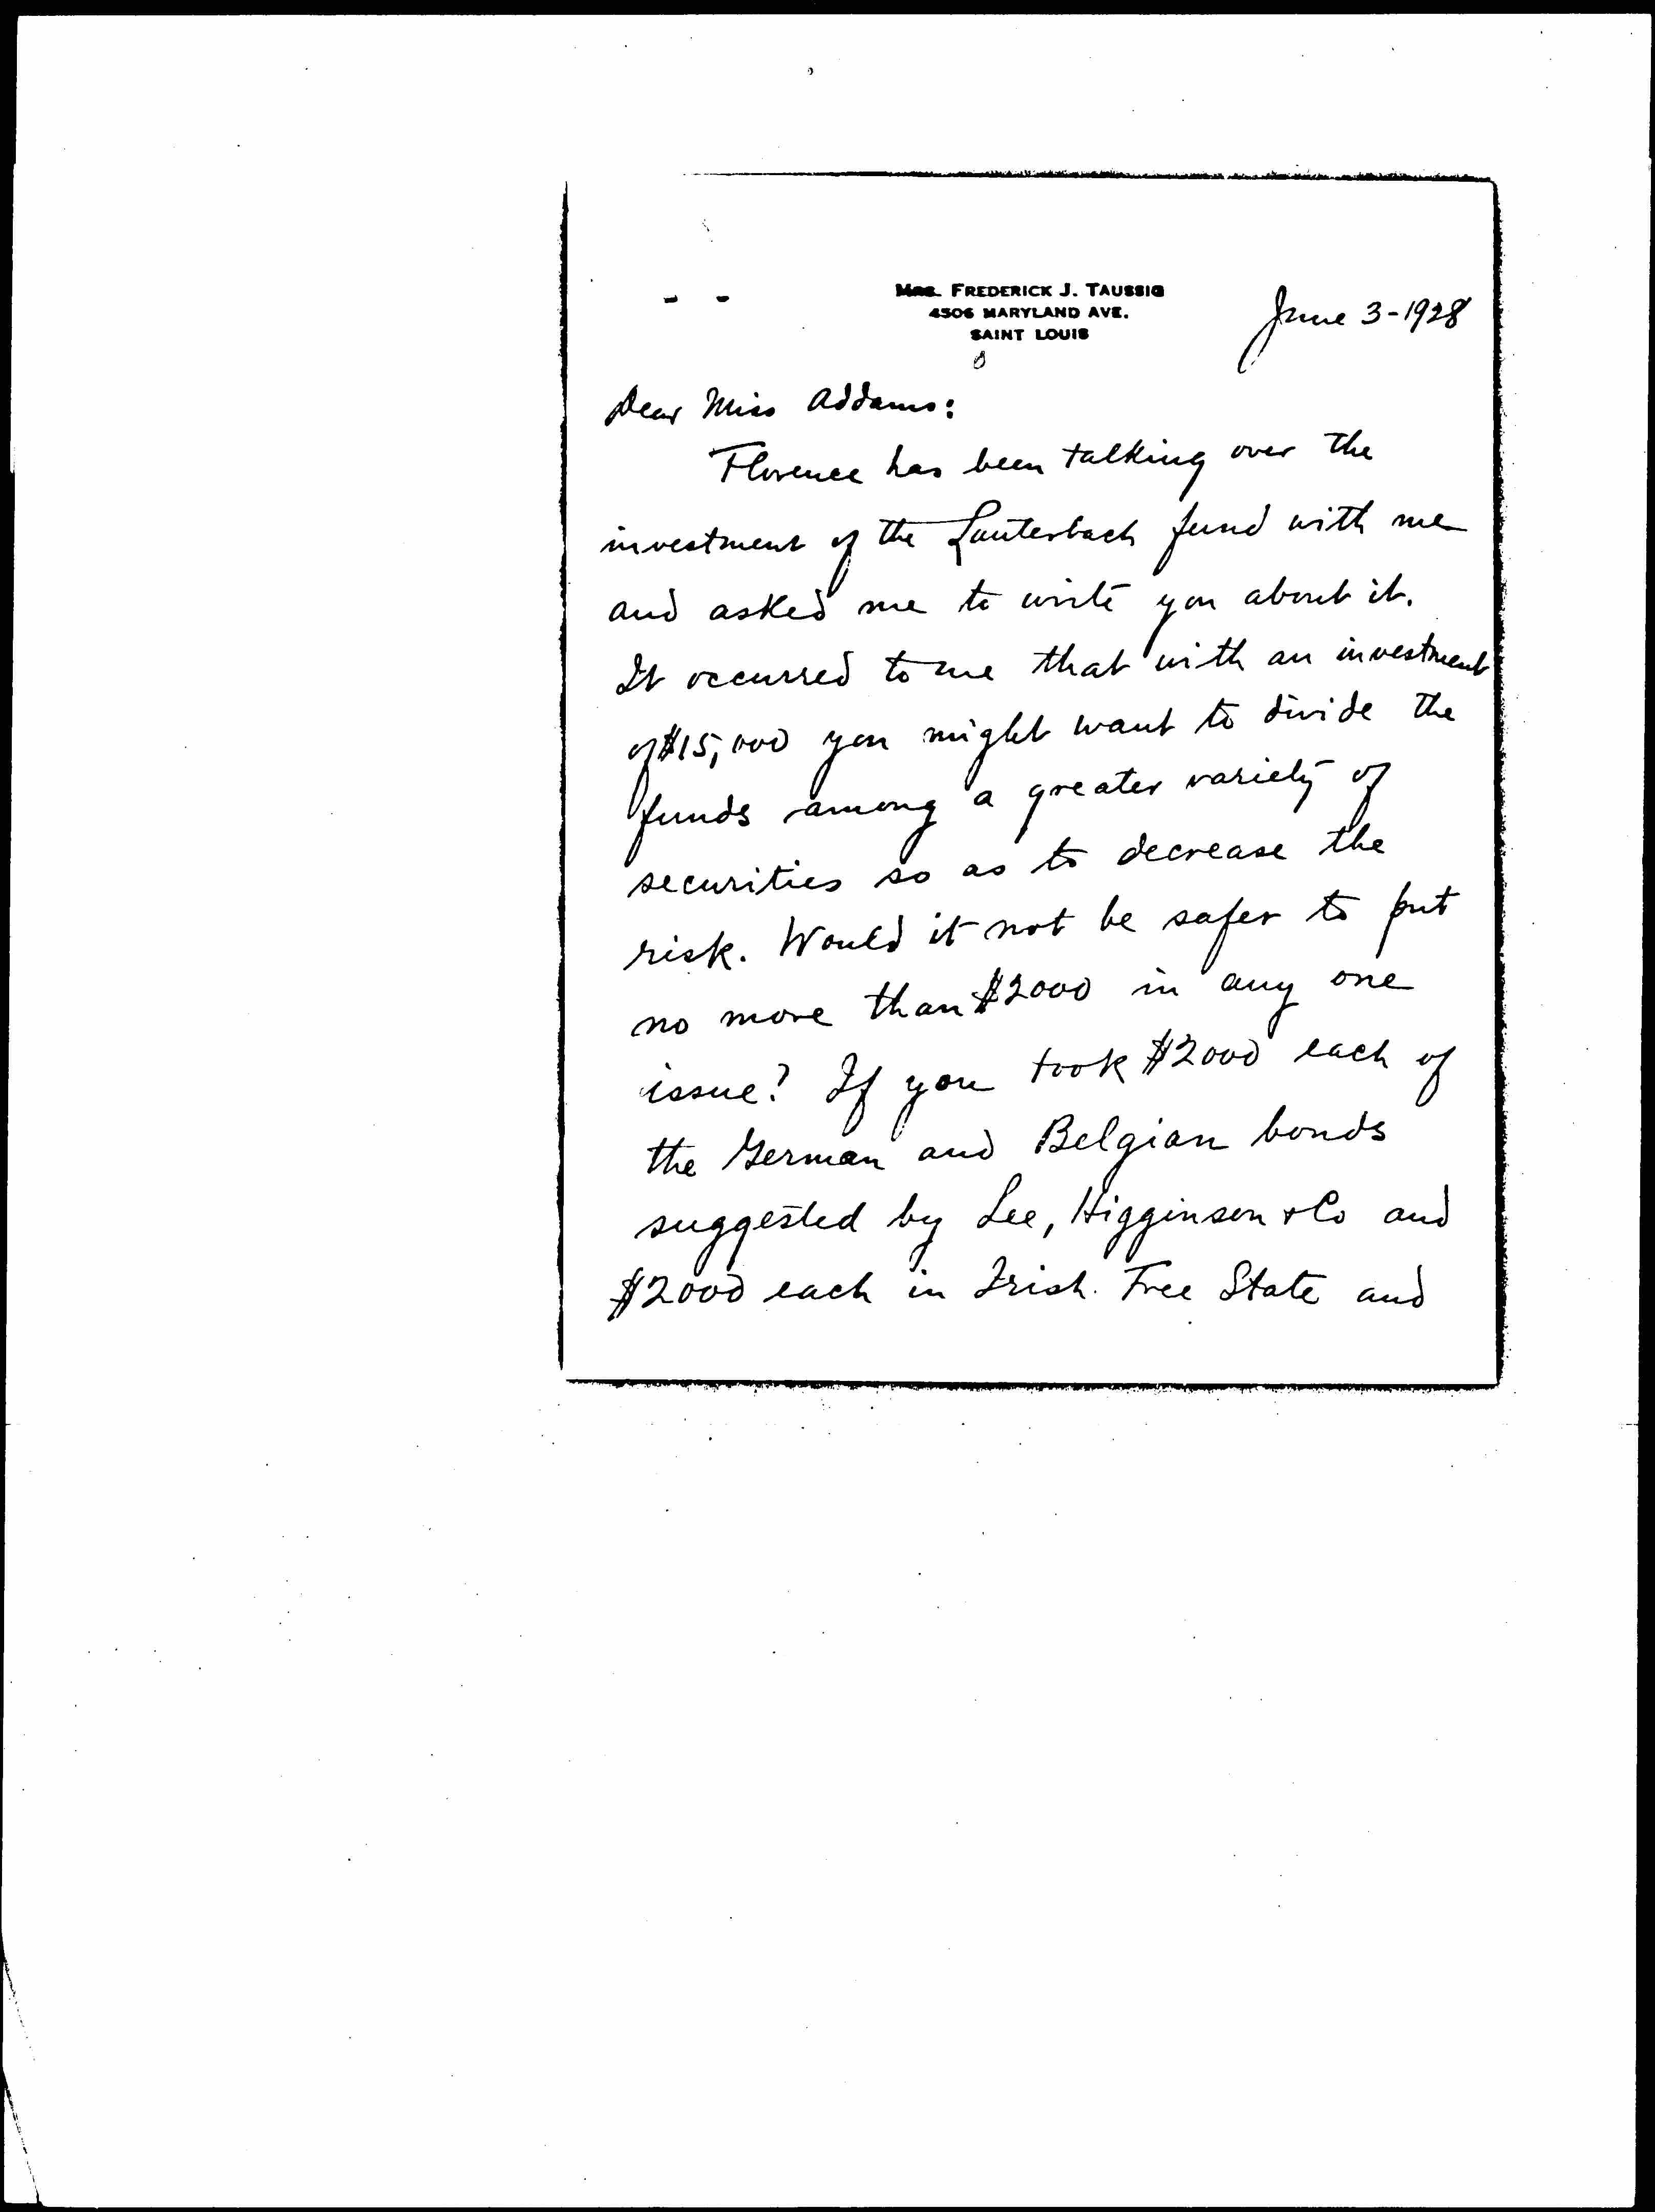 MRS. FREDERICK J. TAUSSIG
4506 MARYLAND AVE.
SAINT LOUIS
June 3-1928
Dear Miss Addams:
Florence has been talking over the
investment of the Lauterbach fund with me
and asked me to write you about it.
It occurred to me that with an investment
of $15,000 you might want to divide the
funds among a greater variety of
securities so as to decrease the
risk. Would it not be safer to put
no more than $2000 in any one
issue? If you took $2000 each of
the German and Belgian bonds
suggested by Lee, Higginson & Co and
$2000 each in Irish Free State and